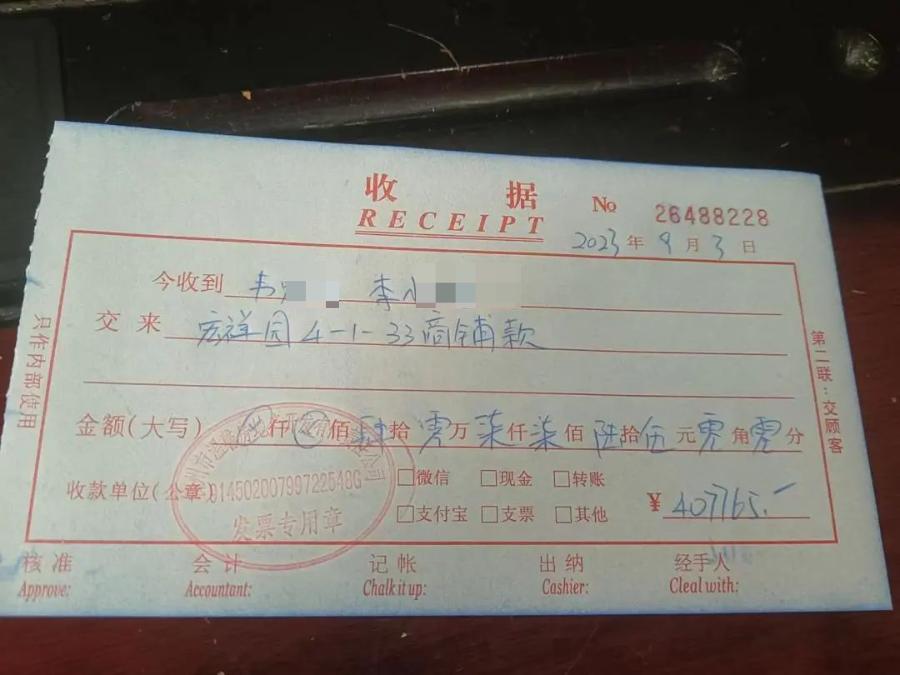 收 据
RECEIPT
No 26488228
2023 年 9 月 3 日
今收到 韦 李小
交来 宏祥园4-1-33商铺款
金额(大写) 仟 佰 肆拾 零万 柒仟 柒佰 陆拾 伍元 零角 零分
收款单位(公章)
微信 现金 转账
支付宝 支票 其他
¥ 407765.-
91450200799722548G
发票专用章
核准 会计 记帐 出纳 经手人
Approve: Accountant: Chalk it up: Cashier: Cleal with:
只作内部使用
第二联:交顾客